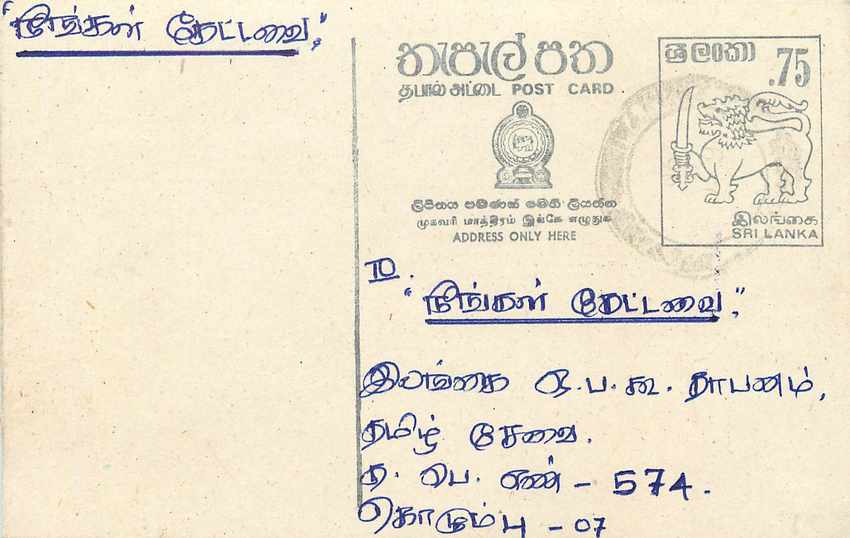 "நீங்கள் கேட்டவை"
තැපැල් පත
தபால் அட்டை POST CARD
ලිපිනය පමණක් මෙහි ලියන්න
முகவரி மாத்திரம் இங்கே எழுதுக
ADDRESS ONLY HERE
ශ්‍රී ලංකා .75
இலங்கை
SRI LANKA
TO.
"நீங்கள் கேட்டவை",
இலங்கை ஒ.ப.கூ. தாபனம்,
தமிழ் சேவை.
த. பெ. எண் - 574.
கொழும்பு - 07